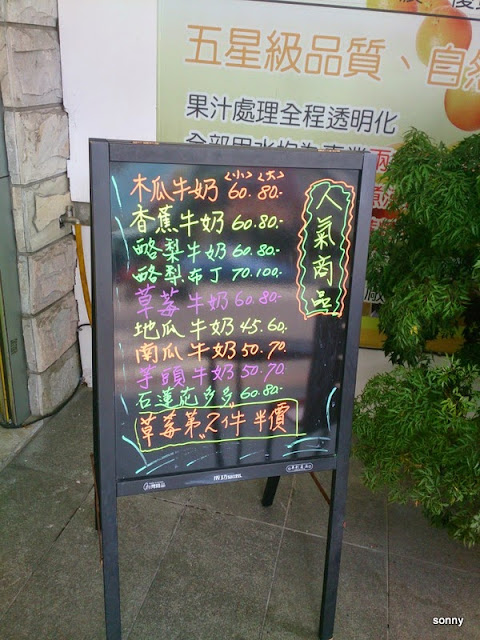 五星級品質、自然
果汁處理全程透明化
人氣商品
(小) (大)
木瓜牛奶 60. 80.-
香蕉牛奶 60.80.-
酪梨牛奶 60.80.-
酪梨布丁 70.100.-
草莓牛奶 60.80.-
地瓜牛奶 45.60.
南瓜牛奶 50.70.
芋頭牛奶 50.70.
石蓮花多多 60.80.-
草莓第"2"件半價
sonny